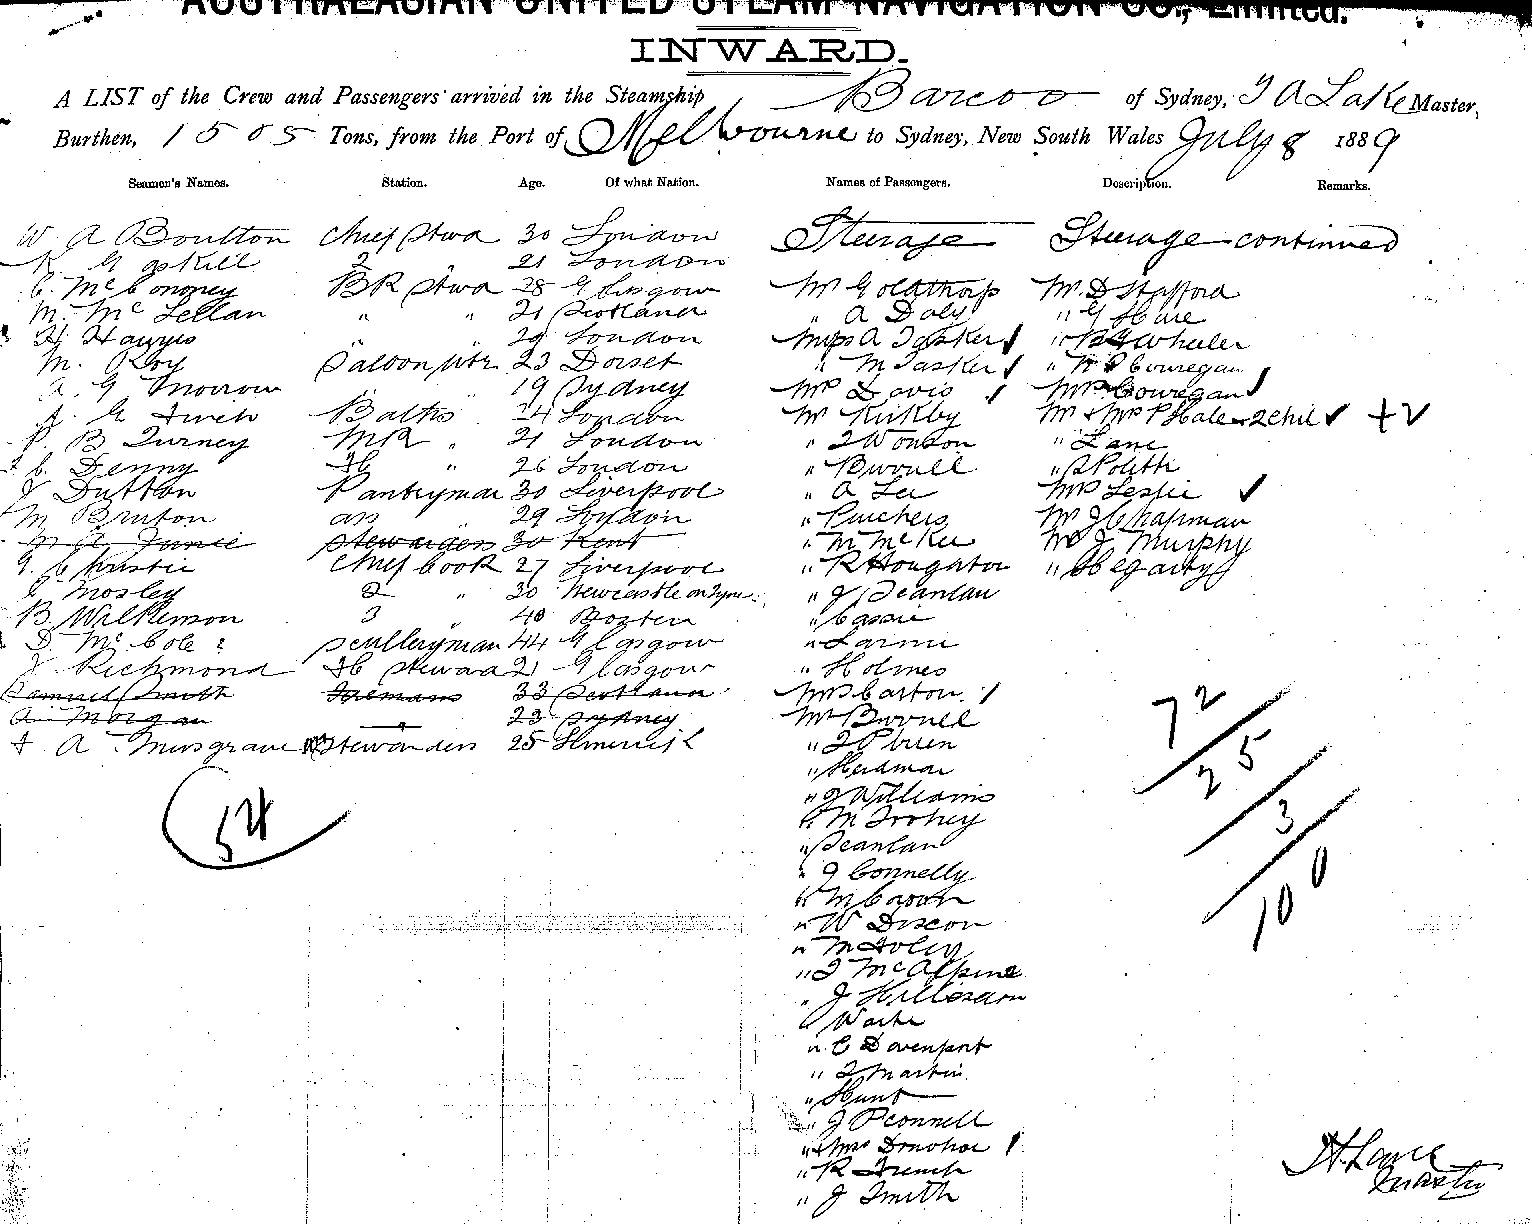 AUSTRALASIAN UNITED STEAM NAVIGATION CO., Limited.
INWARD.
A LIST of the Crew and Passengers arrived in the Steamship Barcoo of Sydney, J A Lake Master,
Burthen, 1505 Tons, from the Port of Melbourne to Sydney, New South Wales July 8 1889
Seamen's Names. Station. Age. Of what Nation. Names of Passengers. Description. Remarks.
W A Boulton Chief Stwd 30 London
Gaskill 2 " 21 London
C. McCononey BR Stwd 28 Glasgow
M. McLellan " " 21 Scotland
H Hayyes " " 29 London
M. Roy Saloon wtr 23 Dorset
A. G Morrow " " 19 Sydney
London
P. B Turney MR " 21 London
C. Denny " 26 London
J Dutton Pantryman 30 Liverpool
M Bruton ass " 29 London
Stewardess 30 Kent
G. Christie Chief Cook 27 Liverpool
Mosley 2 " 30 Newcastle on Tyne
B Wilkinson 3 " 40 Boston
D. McCole Sculleryman 44 Glasgow
J Richmond Steward 21 Glasgow
Samuel Smith Firemans 33 Scotland
A Morgan " 23 Sydney
A Musgrave Stewardess 25 Limerick
54
Steerage
Mr Goldthorp
" A Daly
Miss A Tasker
" M Tasker
Mrs Davis
Mr Kirkby
"
" Burnell
" A Lee
" Puichers
" M McKee
" R Houghton
" J Scanlan
" Cassie
" Larmi
" Holmes
Mrs Carton
Mr Burnell
" J O'Brien
" Herdman
" J Williams
" M Trohey
" Scanlan
" J Connelly
" M Crown
" W Discon
" M Foley
" J McAlpine
" J
"
" C Davenport
" J Martin
" Hunt
" J O'Connell
" Mrs Donohoe
" R French
" J Smith
Steerage continued
Mr D Stafford
" G Hare
" Wheeler
" Cowegan
Mrs Cowegan
Mr & Mrs P Hale & 2 chil + V
" Lane
" S Politti
Mrs Leslie
Mr J Chapman
Mr J Murphy
" Hegarty
72
25
3
100
Master